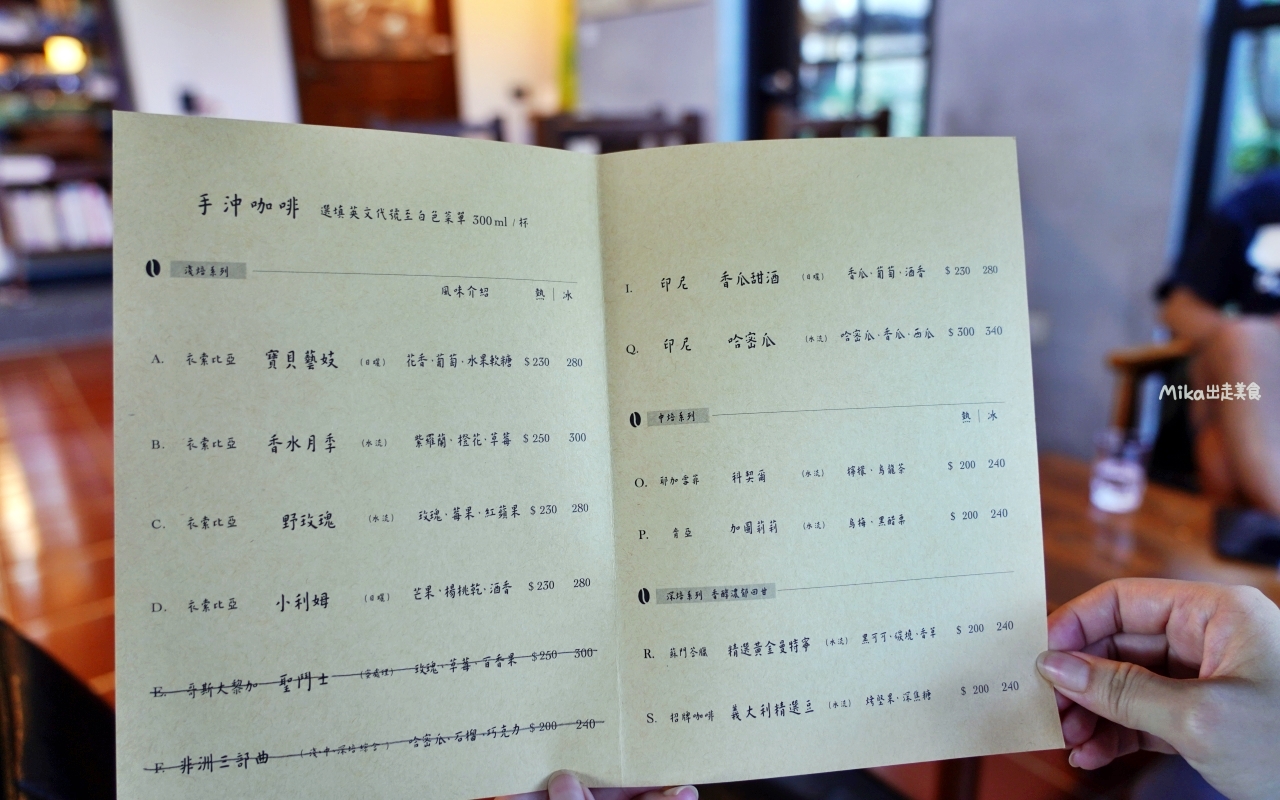 手沖咖啡 選填英文代號至白色菜單 300ml / 杯
淺焙系列
風味介紹 熱 | 冰
A. 衣索比亞 寶貝藝妓 (日曬) 花香·葡萄·水果軟糖 $230 280
B. 衣索比亞 香水月季 (水洗) 紫羅蘭·橙花·草莓 $250 300
C. 衣索比亞 野玫瑰 (水洗) 玫瑰·莓果·紅蘋果 $230 280
D. 衣索比亞 小利姆 (日曬) 芒果·楊桃乾·酒香 $230 280
E. 哥斯大黎加 聖鬥士 (蜜處理) 玫瑰·草莓·百香果 $250 300
F. 非洲三部曲 (淺中深焙綜合) 哈密瓜·石榴·巧克力 $200 240
I. 印尼 香瓜甜酒 (日曬) 香瓜·葡萄·酒香 $230 280
Q. 印尼 哈密瓜 (水洗) 哈密瓜·香瓜·西瓜 $300 340
中焙系列 熱 | 冰
O. 耶加雪菲 科契爾 (水洗) 檸檬·烏龍茶 $ 200 240
P. 肯亞 加圖莿莉 (水洗) 烏梅·黑醋栗 $ 200 240
深焙系列 香醇濃郁回甘
R. 蘇門答臘 精選黃金曼特寧 (水洗) 黑可可·碳燒·香草 $ 200 240
S. 招牌咖啡 義大利精選豆 (水洗) 烤堅果·深焦糖 $ 200 240
Mika出走美食